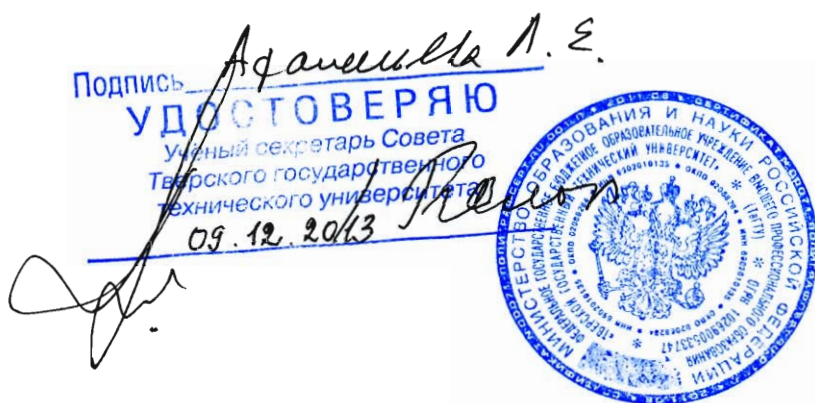 Подпись Афанасьева Л. Е.
УДОСТОВЕРЯЮ
Учёный секретарь Совета
Тверского государственного
технического университета
09.12.2013
МИНИСТЕРСТВО ОБРАЗОВАНИЯ И НАУКИ РОССИЙСКОЙ ФЕДЕРАЦИИ
ФЕДЕРАЛЬНОЕ ГОСУДАРСТВЕННОЕ БЮДЖЕТНОЕ ОБРАЗОВАТЕЛЬНОЕ УЧРЕЖДЕНИЕ ВЫСШЕГО ПРОФЕССИОНАЛЬНОГО ОБРАЗОВАНИЯ
«ТВЕРСКОЙ ГОСУДАРСТВЕННЫЙ ТЕХНИЧЕСКИЙ УНИВЕРСИТЕТ» * (ТвГТУ) * ОГРН 1026900533747 *